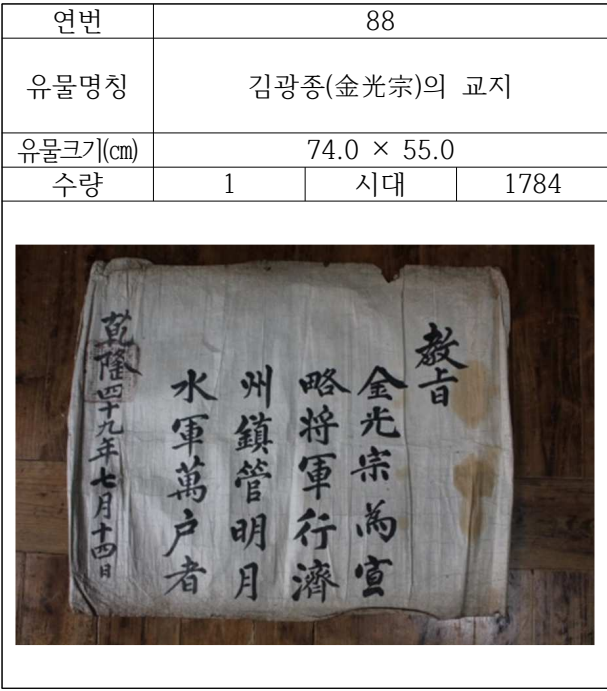 연번 88
유물명칭 김광종(金光宗)의 교지
유물크기(㎝) 74.0 × 55.0
수량 1 시대 1784
敎旨
金光宗爲宣
略將軍行濟
州鎭管明月
水軍萬户者
乾隆四十九年七月十四日